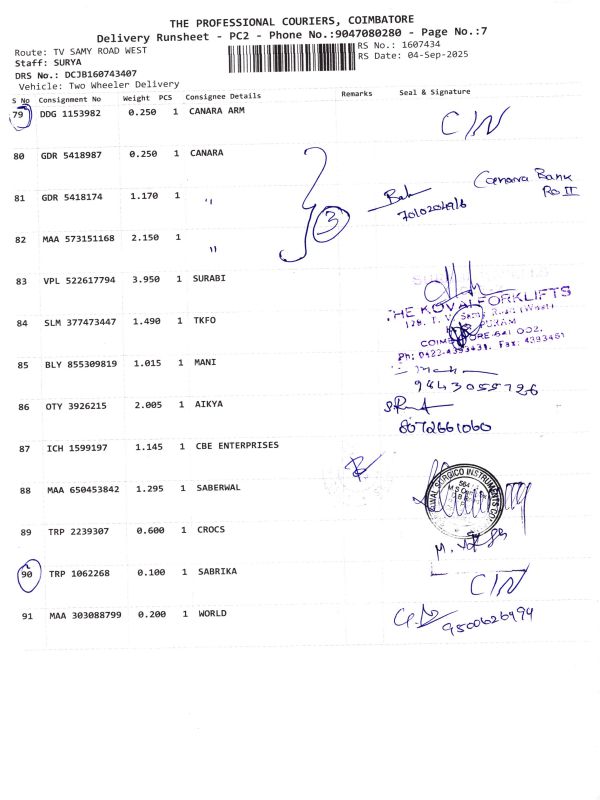 THE PROFESSIONAL COURIERS, COIMBATORE
Delivery Runsheet - PC2 - Phone No.:9047080280 - Page No.:7
Route: TV SAMY ROAD WEST
RS No.: 1607434
Staff: SURYA
RS Date: 04-Sep-2025
DRS No.: DCJB160743407
Vehicle: Two Wheeler Delivery
S No Consignment No Weight PCS Consignee Details Remarks Seal & Signature
79 DDG 1153982 0.250 1 CANARA ARM C/N
80 GDR 5418987 0.250 1 CANARA
Canara Bank
RO II
81 GDR 5418174 1.170 1 "
3
82 MAA 573151168 2.150 1 "
83 VPL 522617794 3.950 1 SURABI
THE KOVAI FORKLIFTS
84 SLM 377473447 1.490 1 TKFO
COIMBATORE-641 002.
Ph: 0422-4393431. Fax: 4393461
85 BLY 855309819 1.015 1 MANI
9443055726
86 OTY 3926215 2.005 1 AIKYA
8072661060
87 ICH 1599197 1.145 1 CBE ENTERPRISES
88 MAA 650453842 1.295 1 SABERWAL
SURGICO INSTRUMENTS CO
89 TRP 2239307 0.600 1 CROCS
90 TRP 1062268 0.100 1 SABRIKA C/N
91 MAA 303088799 0.200 1 WORLD
9500626994